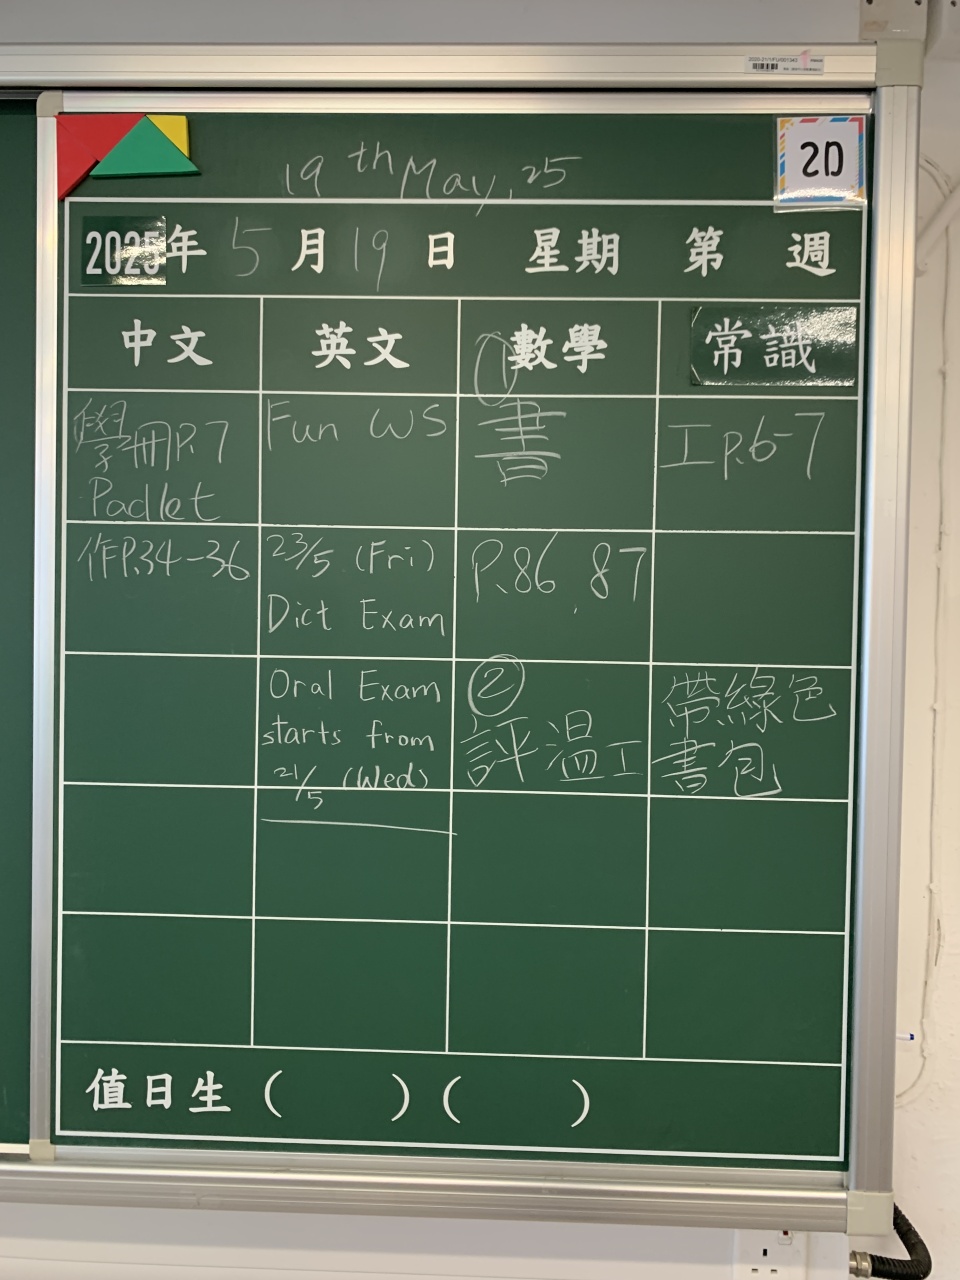 19th May, 25
2D
2025年 5月19日 星期 第 週
中文
英文
數學
常識
學冊P.7
Padlet
Fun WS
①
書
工P.6-7
作P.34-36
23/5 (Fri)
Dict Exam
P.86, 87
Oral Exam
starts from
21/5 (Wed)
②
評溫工
帶綠色
書包
值日生 ( ) ( )